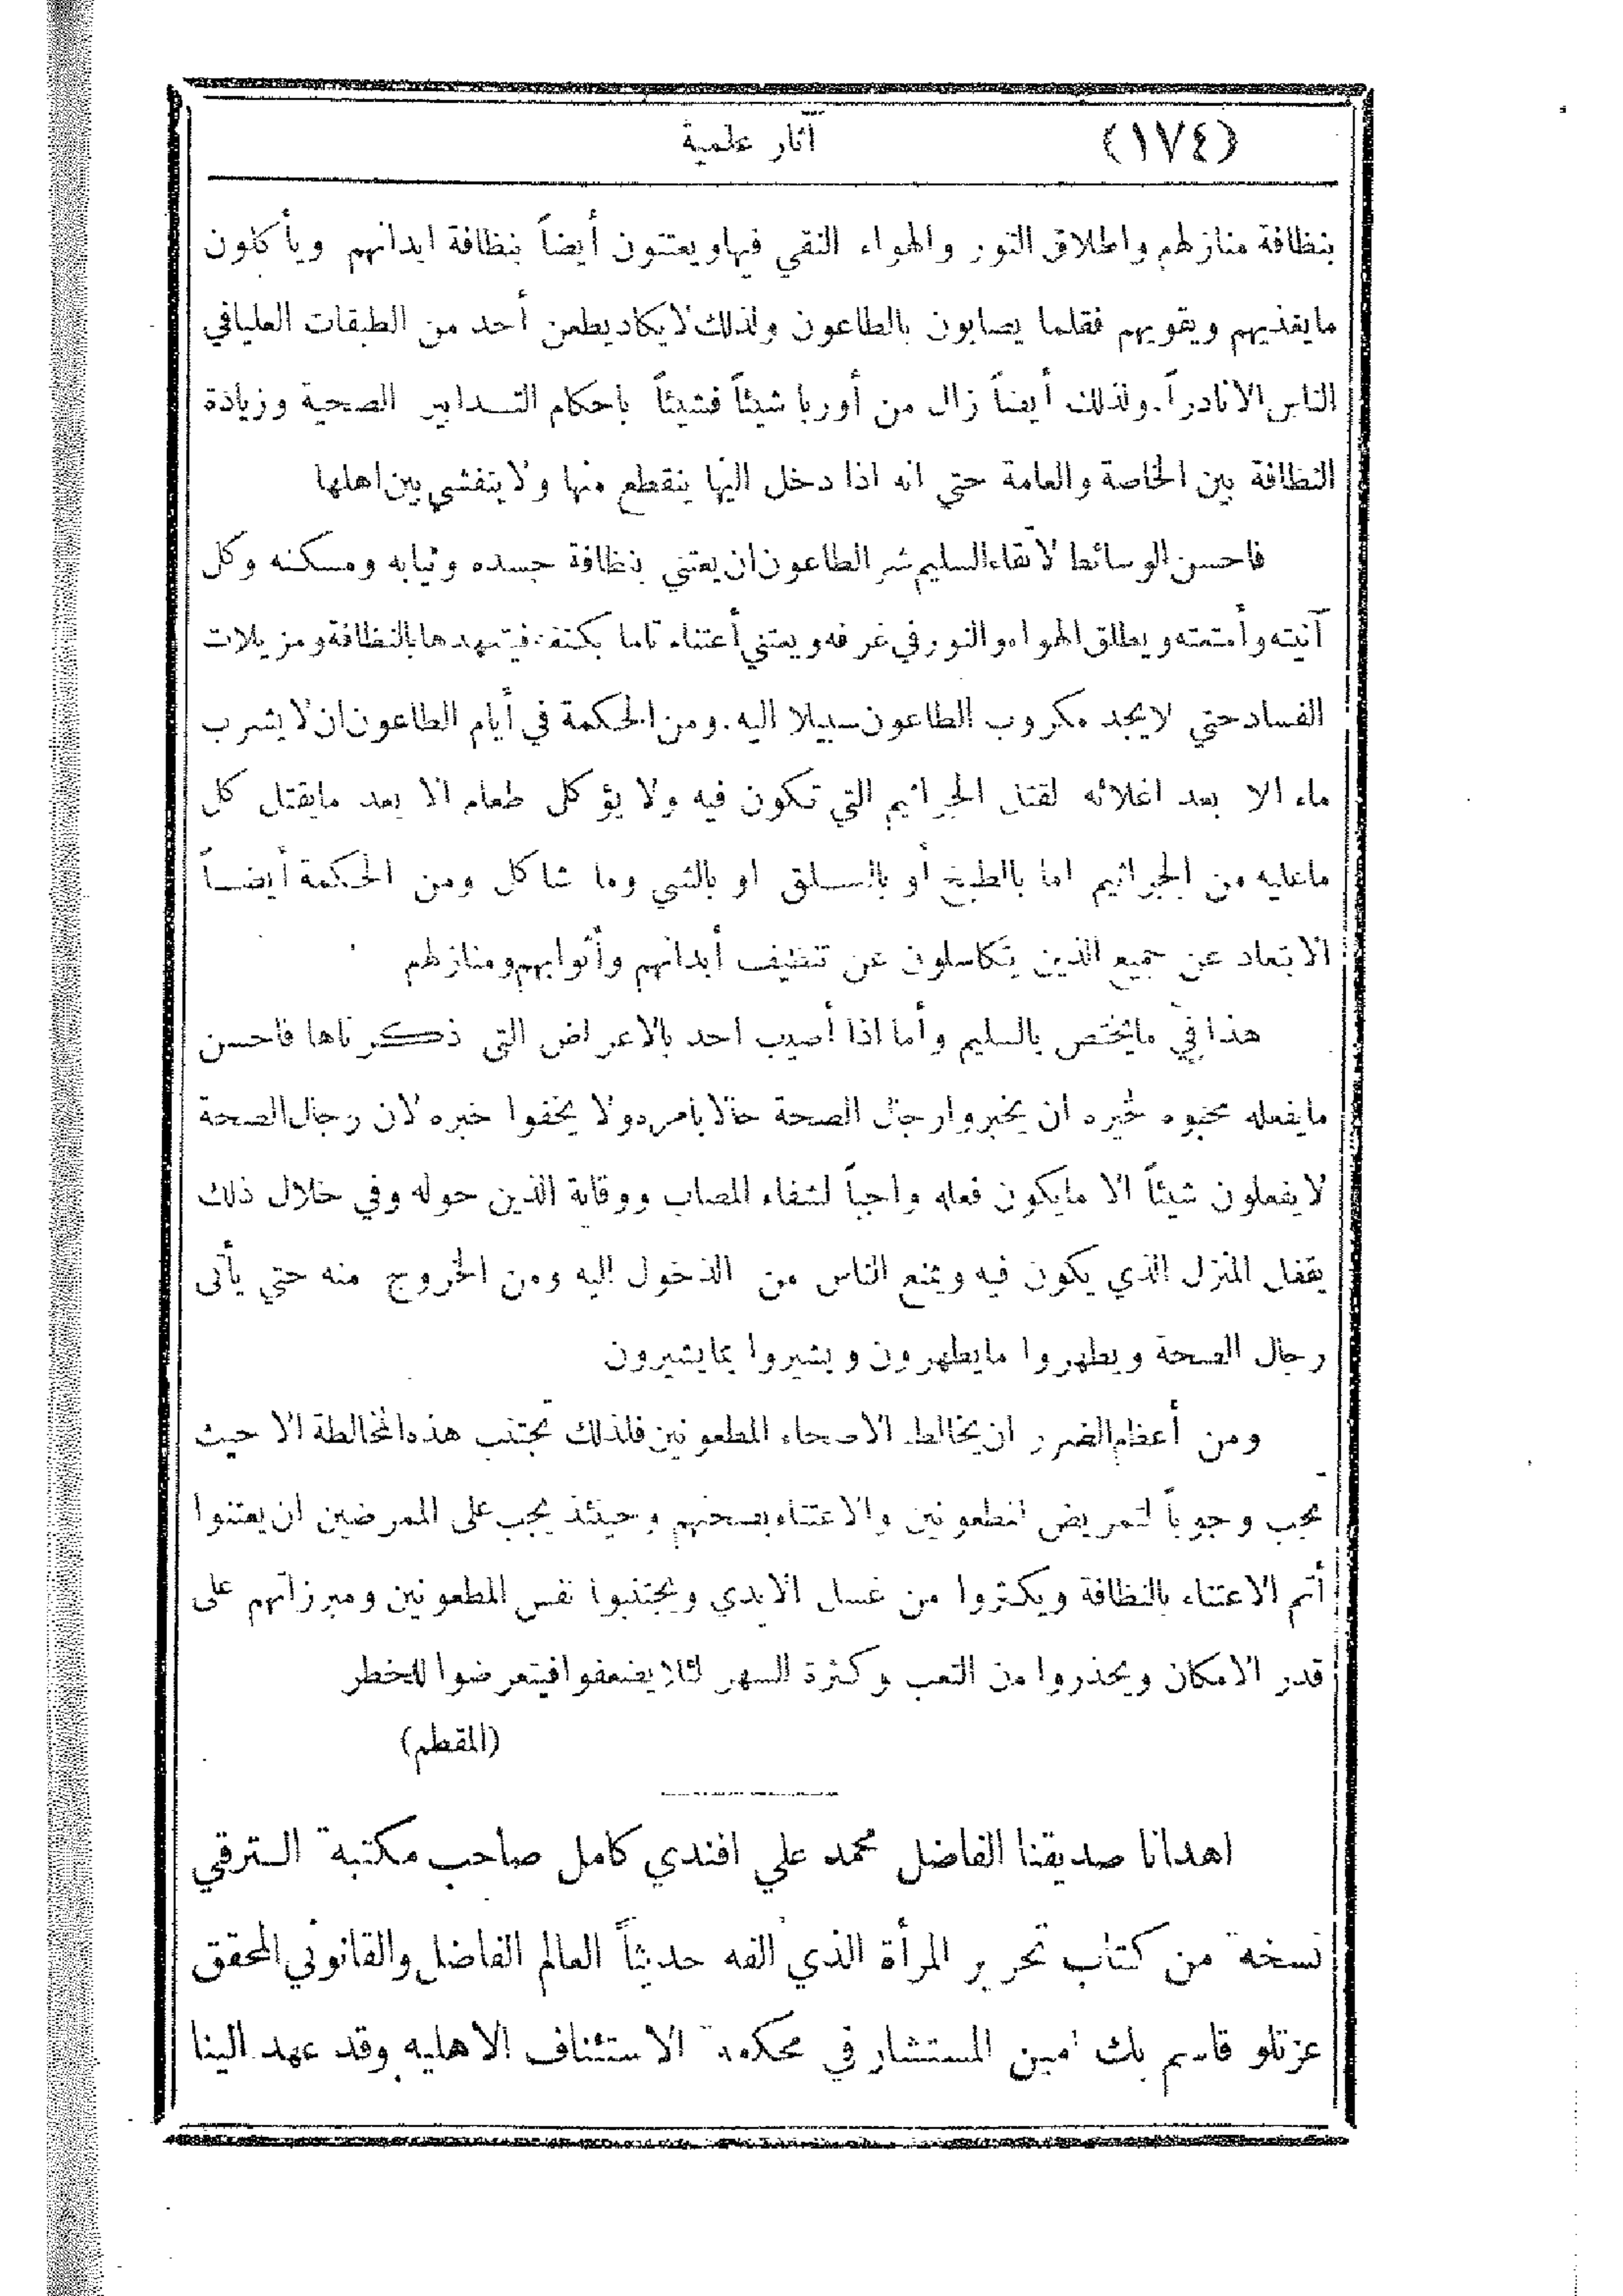 (١٧٤) آثار علمية
بنظافة منازلهم واطلاق النور والهواء النقي فيها ويعتنون أيضاً بنظافة ابدانهم ويأكلون
مايغذيهم ويقويهم فقلما يصابون بالطاعون ولذلك لا يكاد يطعن أحد من الطبقات العليا في
الناس الا نادراً. ولذلك أيضاً زال من أوربا شيئاً فشيئاً باحكام التدابير الصحية وزيادة
النظافة بين الخاصة والعامة حتي انه اذا دخل اليها ينقطع منها ولا يتفشي بين اهلها
فاحسن الوسائط لاتقاء السليم شر الطاعون ان يعتني بنظافة جسده وثيابه ومسكنه وكل
آنيته وأمتعته ويطلق الهواء والنور في غرفه ويعتني أعتناء تاما بكنفه فيتعهدها بالنظافة ومزيلات
الفساد حتي لايجد مكروب الطاعون سبيلا اليه. ومن الحكمة في أيام الطاعون ان لا يشرب
ماء الا بعد اغلائه لقتل الجراثيم التي تكون فيه ولا يؤكل طعام الا بعد مايقتل كل
ماعليه من الجراثيم اما بالطبخ أو بالسلق او بالشي وما شاكل ومن الحكمة أيضاً
الابتعاد عن جميع الذين يتكاسلون عن تنظيف أبدانهم وأثوابهم ومنازلهم
هذا في مايختص بالسليم وأما اذا أصيب احد بالاعراض التي ذكرناها فاحسن
مايفعله محبوه لخيره ان يخبروا رجال الصحة حالا بأمره ولا يخفوا خبره لان رجال الصحة
لا يفعلون شيئاً الا مايكون فعله واجباً لشفاء المصاب ووقاية الذين حوله وفي خلال ذلك
يقفل المنزل الذي يكون فيه ويمنع الناس من الدخول اليه ومن الخروج منه حتي يأتى
رجال الصحة ويطهروا مايطهرون ويشيروا بمايشيرون
ومن أعظم الضرر ان يخالط الاصحاء المطعونين فلذلك تجتنب هذه المخالطة الا حيث
يجب وجوباً لتمريض المطعونين والاعتناء بصحتهم وحينئذ يجب على الممرضين ان يعتنوا
أتم الاعتناء بالنظافة ويكثروا من غسل الايدي ويجتنبوا نفس المطعونين ومبرزاتهم على
قدر الامكان ويحذروا من التعب وكثرة السهر لئلا يضعفوا فيتعرضوا للخطر
(المقطم)
اهدانا صديقنا الفاضل محمد علي افندي كامل صاحب مكتبة الترقي
نسخة من كتاب تحرير المرأة الذي الفه حديثاً العالم الفاضل والقانوني المحقق
عزتلو قاسم بك امين المستشار في محكمة الاستئناف الاهليه وقد عهد الينا